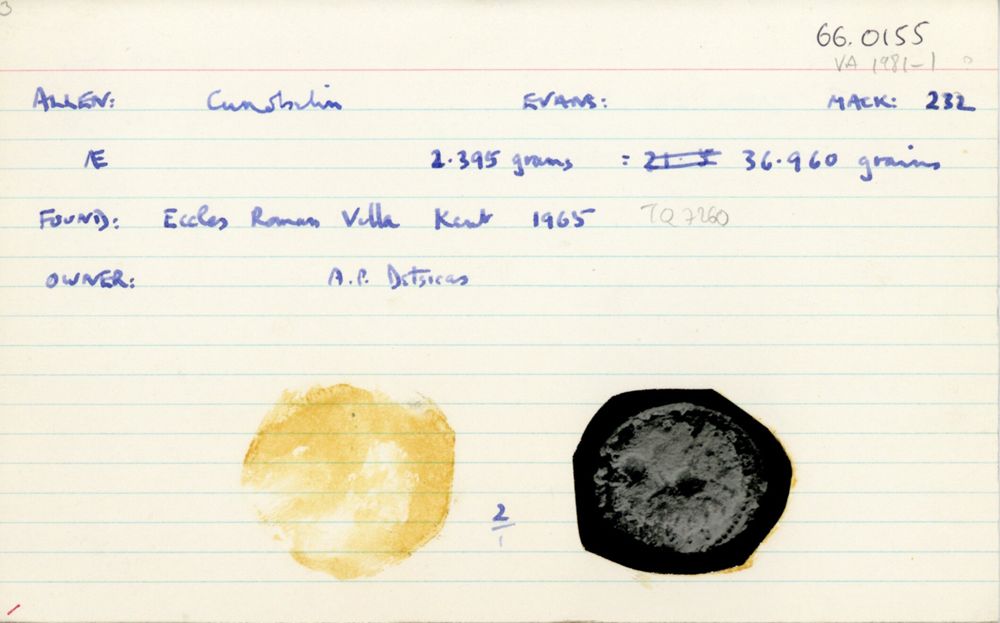 3
66.0155
VA 1981-1 ?
ALLEN: Cunobelin EVANS: MACK: 232
Æ 2.395 grams = 36.960 grains
FOUND: Eccles Roman Villa Kent 1965 TQ 7260
OWNER: A.P. Detsicas
2
1